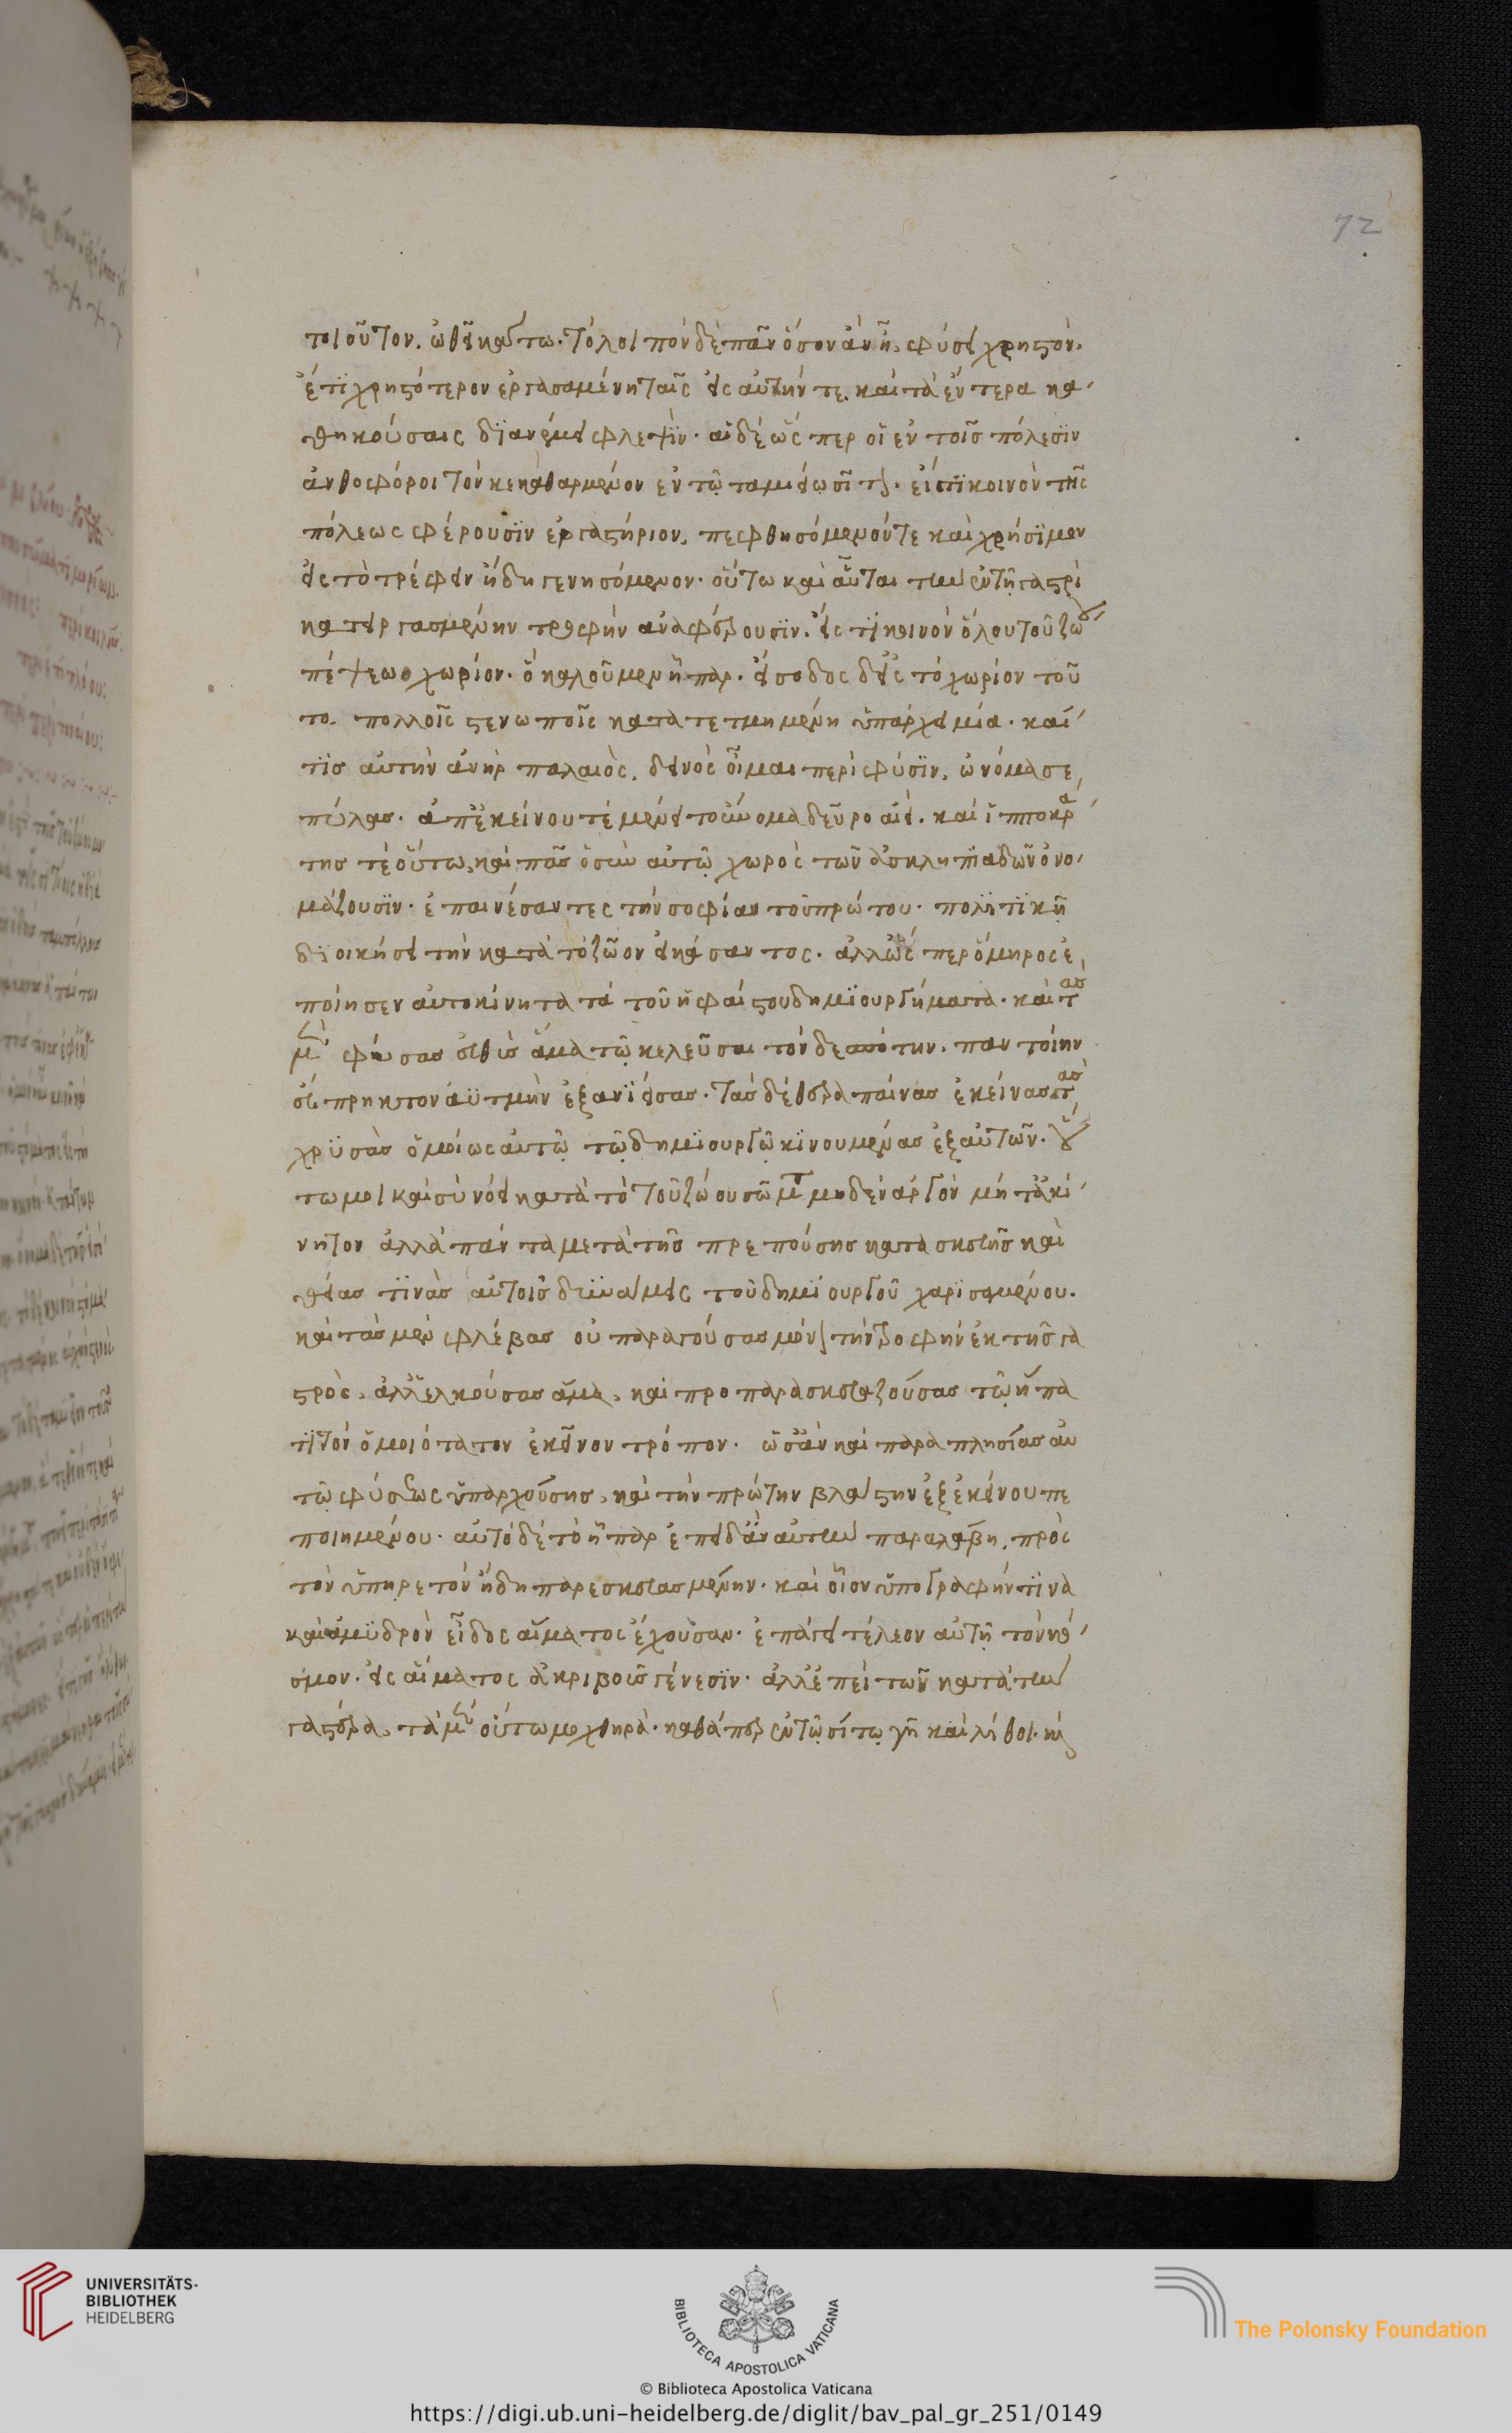 72
τοιοῦτον. ὠθεῖ κάτω. τὸ λοιπὸν δὲ πᾶν ὅσον ἂν ᾖ φύσει χρηστὸν.
ἔτι χρηστότερον ἐργασαμένη ταῖς εἰς αὐτήν τε καὶ τὰ ἔντερα κα
θηκούσαις διανέμει φλεψὶν. αἱ δὲ ὥσπερ οἱ ἐν τοῖς πόλεσιν
ἀχθοφόροι τὸν κεκαθαρμένον ἐν τῷ ταμιείῳ σῖτον. εἰς τι κοινὸν τῆς
πόλεως φέρουσιν ἐργαστήριον. πεφθησόμενόν τε καὶ χρήσιμον
εἰς τὸ τρέφειν ἤδη γενησόμενον. οὕτω καὶ αὗται τὴν ἐν τῇ γαστρὶ
κατειργασμένην τροφὴν ἀναφέρουσιν. εἴς τι κοινὸν ὅλου τοῦ ζώου
πέψεως χωρίον. ὃ καλοῦμεν ἧπαρ. εἴσοδος δ' εἰς τὸ χωρίον τοῦ
το. πολλοῖς στενωποῖς κατατετμημένη ὑπάρχει μία. καί
τις αὐτὴν ἀνὴρ παλαιὸς, δεινὸς οἶμαι περὶ φύσιν, ὠνόμασε
πύλας. ἀπ' ἐκείνου τε μένει τοὔνομα δεῦρο ἀεί. καὶ ἱπποκρά
της τε οὕτω, καὶ πᾶς ὁ σὺν αὐτῷ χορὸς τῶν ἀσκληπιαδῶν ὀνο
μάζουσιν. ἐπαινέσαντες τὴν σοφίαν τοῦ πρώτου. πολιτικῇ
διοικήσει τὴν κατὰ τὸ ζῶον εἰκάσαντος. ἀλλ' ὥσπερ ὅμηρος ἐ
ποίησεν αὐτοκίνητα τὰ τοῦ ἡφαίστου δημιουργήματα. καὶ τὰς
μὲν φύσας εὐθὺς ἅμα τῷ κελεῦσαι τὸν δεσπότην. παντοίην
εὔπρηκτον ἀϋτμὴν ἐξανιείσας. τὰς δὲ θεραπαίνας ἐκείνας τὰς
χρυσᾶς ὁμοίως αὐτῷ τῷ δημιουργῷ κινουμένας ἐξ αὑτῶν. οὕ
τω μοι καὶ σὺ νόει κατὰ τὸ τοῦ ζώου σῶμα μηδὲν ἀργὸν μήτ' ἀκί
νητον ἀλλὰ πάντα μετὰ τῆς πρεπούσης κατασκευῆς καὶ
θείας τινὰς αὐτοῖς δυνάμεις τοῦ δημιουργοῦ χαρισαμένου.
καὶ τὰς μὲν φλέβας οὐ παραγούσας μόνον τὴν τροφὴν ἐκ τῆς γα
στρὸς, ἀλλ' ἑλκούσας ἅμα, καὶ προπαρασκευαζούσας τῷ ἥπα
τι τὸν ὁμοιότατον ἐκεῖνον τρόπον. ὡς ἂν καὶ παραπλησίας αὐ
τῷ φύσεως ὑπαρχούσης, καὶ τὴν πρώτην βλάστην ἐξ ἐκείνου πε
ποιημένου. αὐτὸ δὲ τὸ ἧπαρ ἐπειδὰν αὐτὴν παραλάβῃ, πρὸς
τῶν ὑπηρετῶν ἤδη παρεσκευασμένην. καὶ οἷον ὑπογραφήν τινα
καὶ ἀμυδρὸν εἶδος αἵματος ἔχουσαν. ἐπάγει τέλεον αὐτῇ τὸν κό
σμον. εἰς αἵματος ἀκριβοῦς γένεσιν. ἀλλ' ἐπεὶ τῶν κατὰ τὴν
γαστέρα, τὰ μὲν οὕτω μοχθηρὰ. καθάπερ ἐν τῷ σίτῳ γῆ καὶ λίθοι. καὶ
UNIVERSITÄTS-
BIBLIOTHEK
HEIDELBERG
BIBLIOTECA APOSTOLICA VATICANA
The Polonsky Foundation
© Biblioteca Apostolica Vaticana
https://digi.ub.uni-heidelberg.de/diglit/bav_pal_gr_251/0149